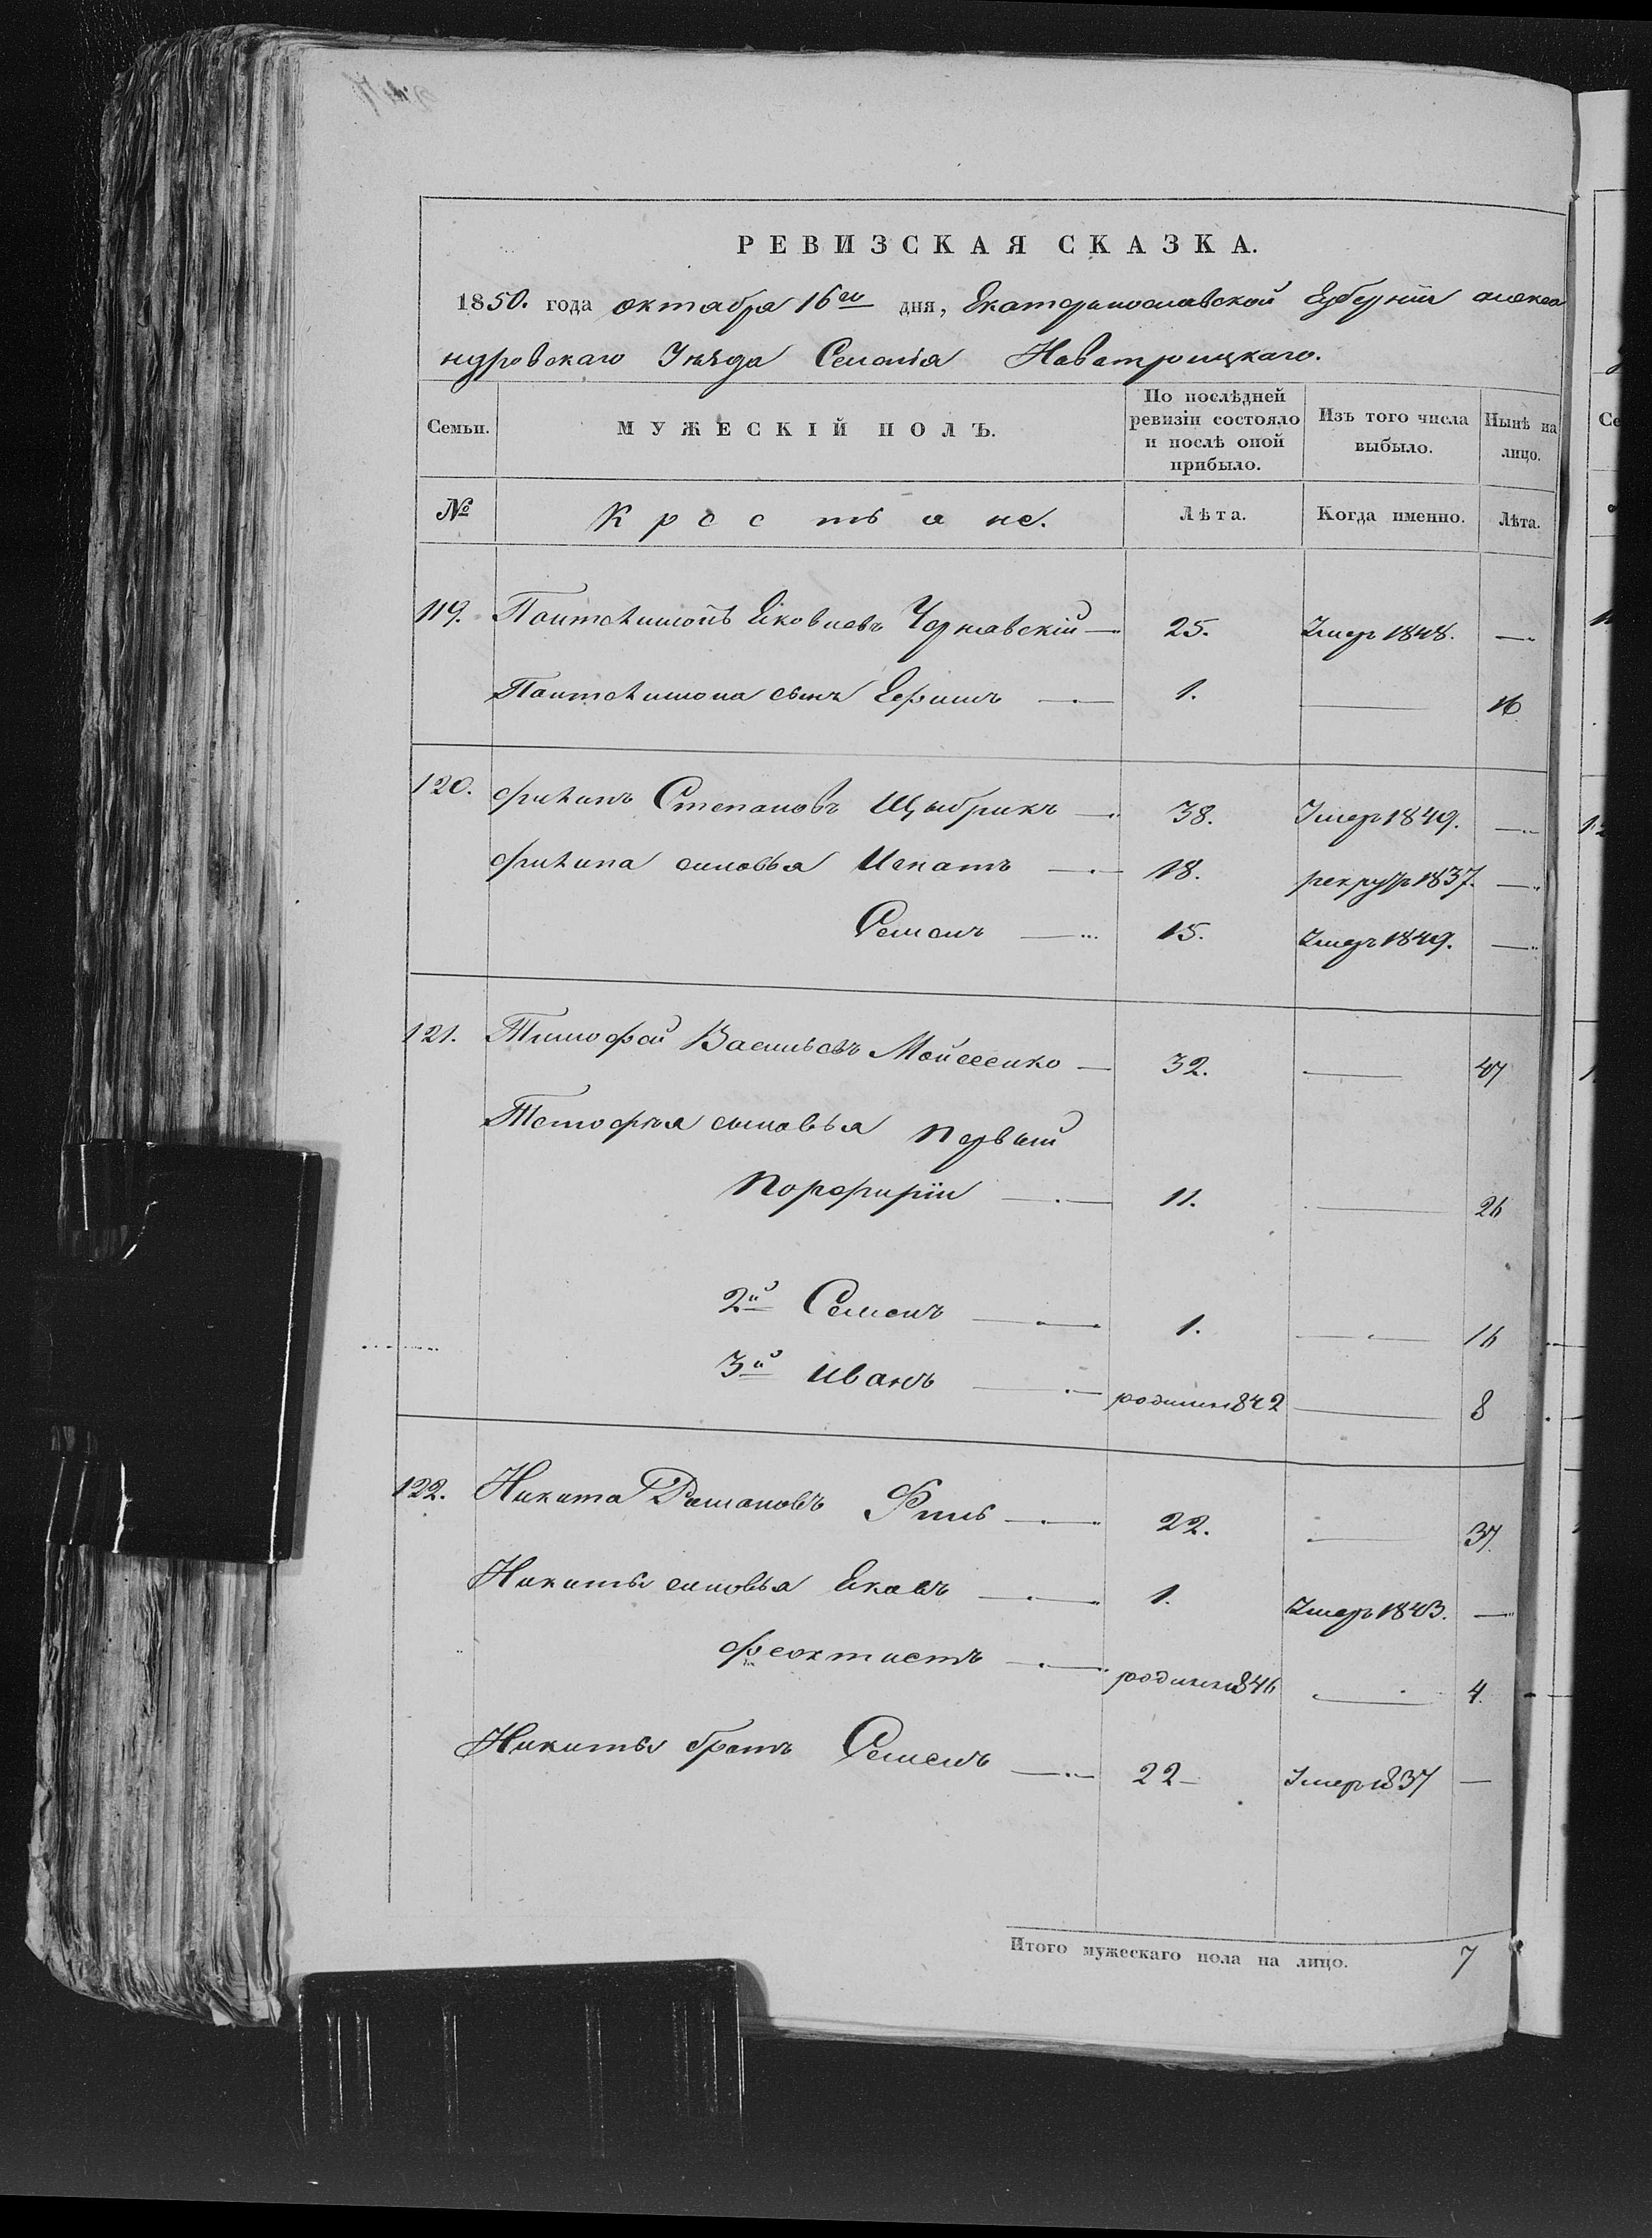 РЕВИЗСКАЯ СКАЗКА.
1850. года октября 16го дня, Екатеринославской Губерніи алекса
ндровскаго Уѣзда Селенія Новотроицкаго.
Семьи. МУЖЕСКІЙ ПОЛЪ. По послѣдней ревизіи состояло и послѣ оной прибыло. Изъ того числа выбыло. Нынѣ на лицо.
№ Крестьяне. Лѣта. Когда именно. Лѣта.
119. Пантелимонъ Яковлевъ Чернявскій — 25. Умеръ 1848. —
Пантелимона сынъ Ефимъ — 1. — 16
120. Филипъ Степановъ Щыбрикъ — 38. Умеръ 1849. —
Филипа сыновья Игнатъ — 18. рекрутъ 1837. —
Семенъ — 15. Умеръ 1849. —
121. Тимофей Васильевъ Мойсеенко — 32. — 47
Тимофея сыновья первый
Порфирій — 11. — 26
2й Семенъ — 1. — 16
3й Иванъ — родился 1842 — 8
122. Никита Романовъ — 22. — 37.
Никиты сыновья Яковъ — 1. Умеръ 1843. —
Феоктистъ — родился 1846 — 4.
Никиты братъ Семенъ — 22 — Умеръ 1837 —
Итого мужескаго пола на лицо. 7